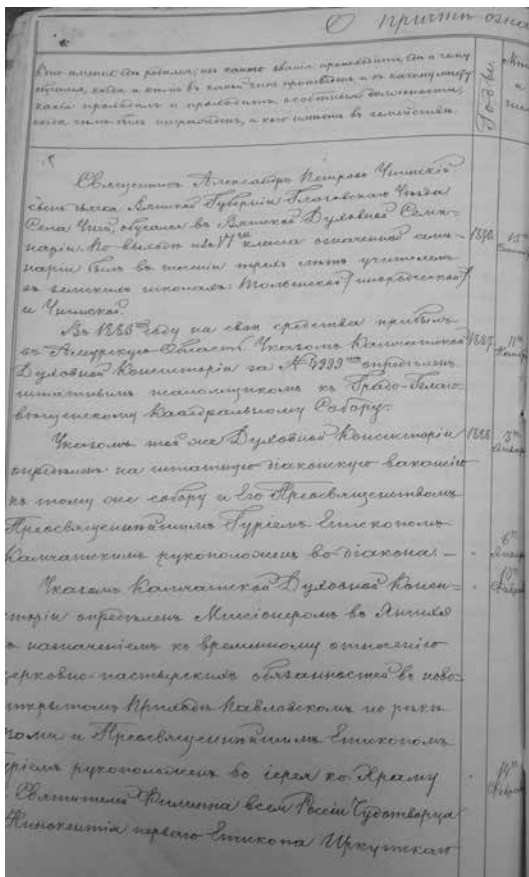 О причтѣ озна
Кто именно, гдѣ родился, изъ какого званія происходитъ, гдѣ и чему
обучался, когда и кѣмъ въ какой чинъ произведенъ и къ какому мѣсту
проходилъ и проходитъ особенныя должности,
когда чѣмъ былъ награжденъ, и кого имѣетъ въ семействѣ.
Годы
Священникъ Александръ Петровъ
Вятской Губерніи Глазовскаго Уѣзда
Села обучался въ Вятской Духовной Семи-
наріи. По выходѣ изъ класса означенной семи-
наріи былъ въ теченіи трехъ лѣтъ учителемъ
въ земскихъ школахъ:
и
Въ году на свои средства прибылъ
въ Амурскую Область. Указомъ Камчатской
Духовной Консисторіи за № 4999 опредѣленъ
штатнымъ псаломщикомъ къ Градо-Благо-
вѣщенскому Каѳедральному Собору.
1887
Указомъ той же Духовной Консисторіи
1888
опредѣленъ на штатную діаконскую вакансію
къ тому же собору и Его Преосвященствомъ
Преосвященнѣйшимъ Гуріемъ Епископомъ
Камчатскимъ рукоположенъ во діакона. —
Указомъ Камчатской Духовной Конси-
сторіи опредѣленъ Миссіонеромъ въ
съ назначеніемъ ко временному
церковно-пастырскихъ обязанностей въ ново-
открытомъ Приходѣ Павловскомъ по рѣкѣ
Томи и Преосвященнѣйшимъ Епископомъ
Гуріемъ рукоположенъ во іерея ко Храму
Святителей Филиппа всея Россіи Чудотворца
Иннокентія перваго Епископа Иркутскаго